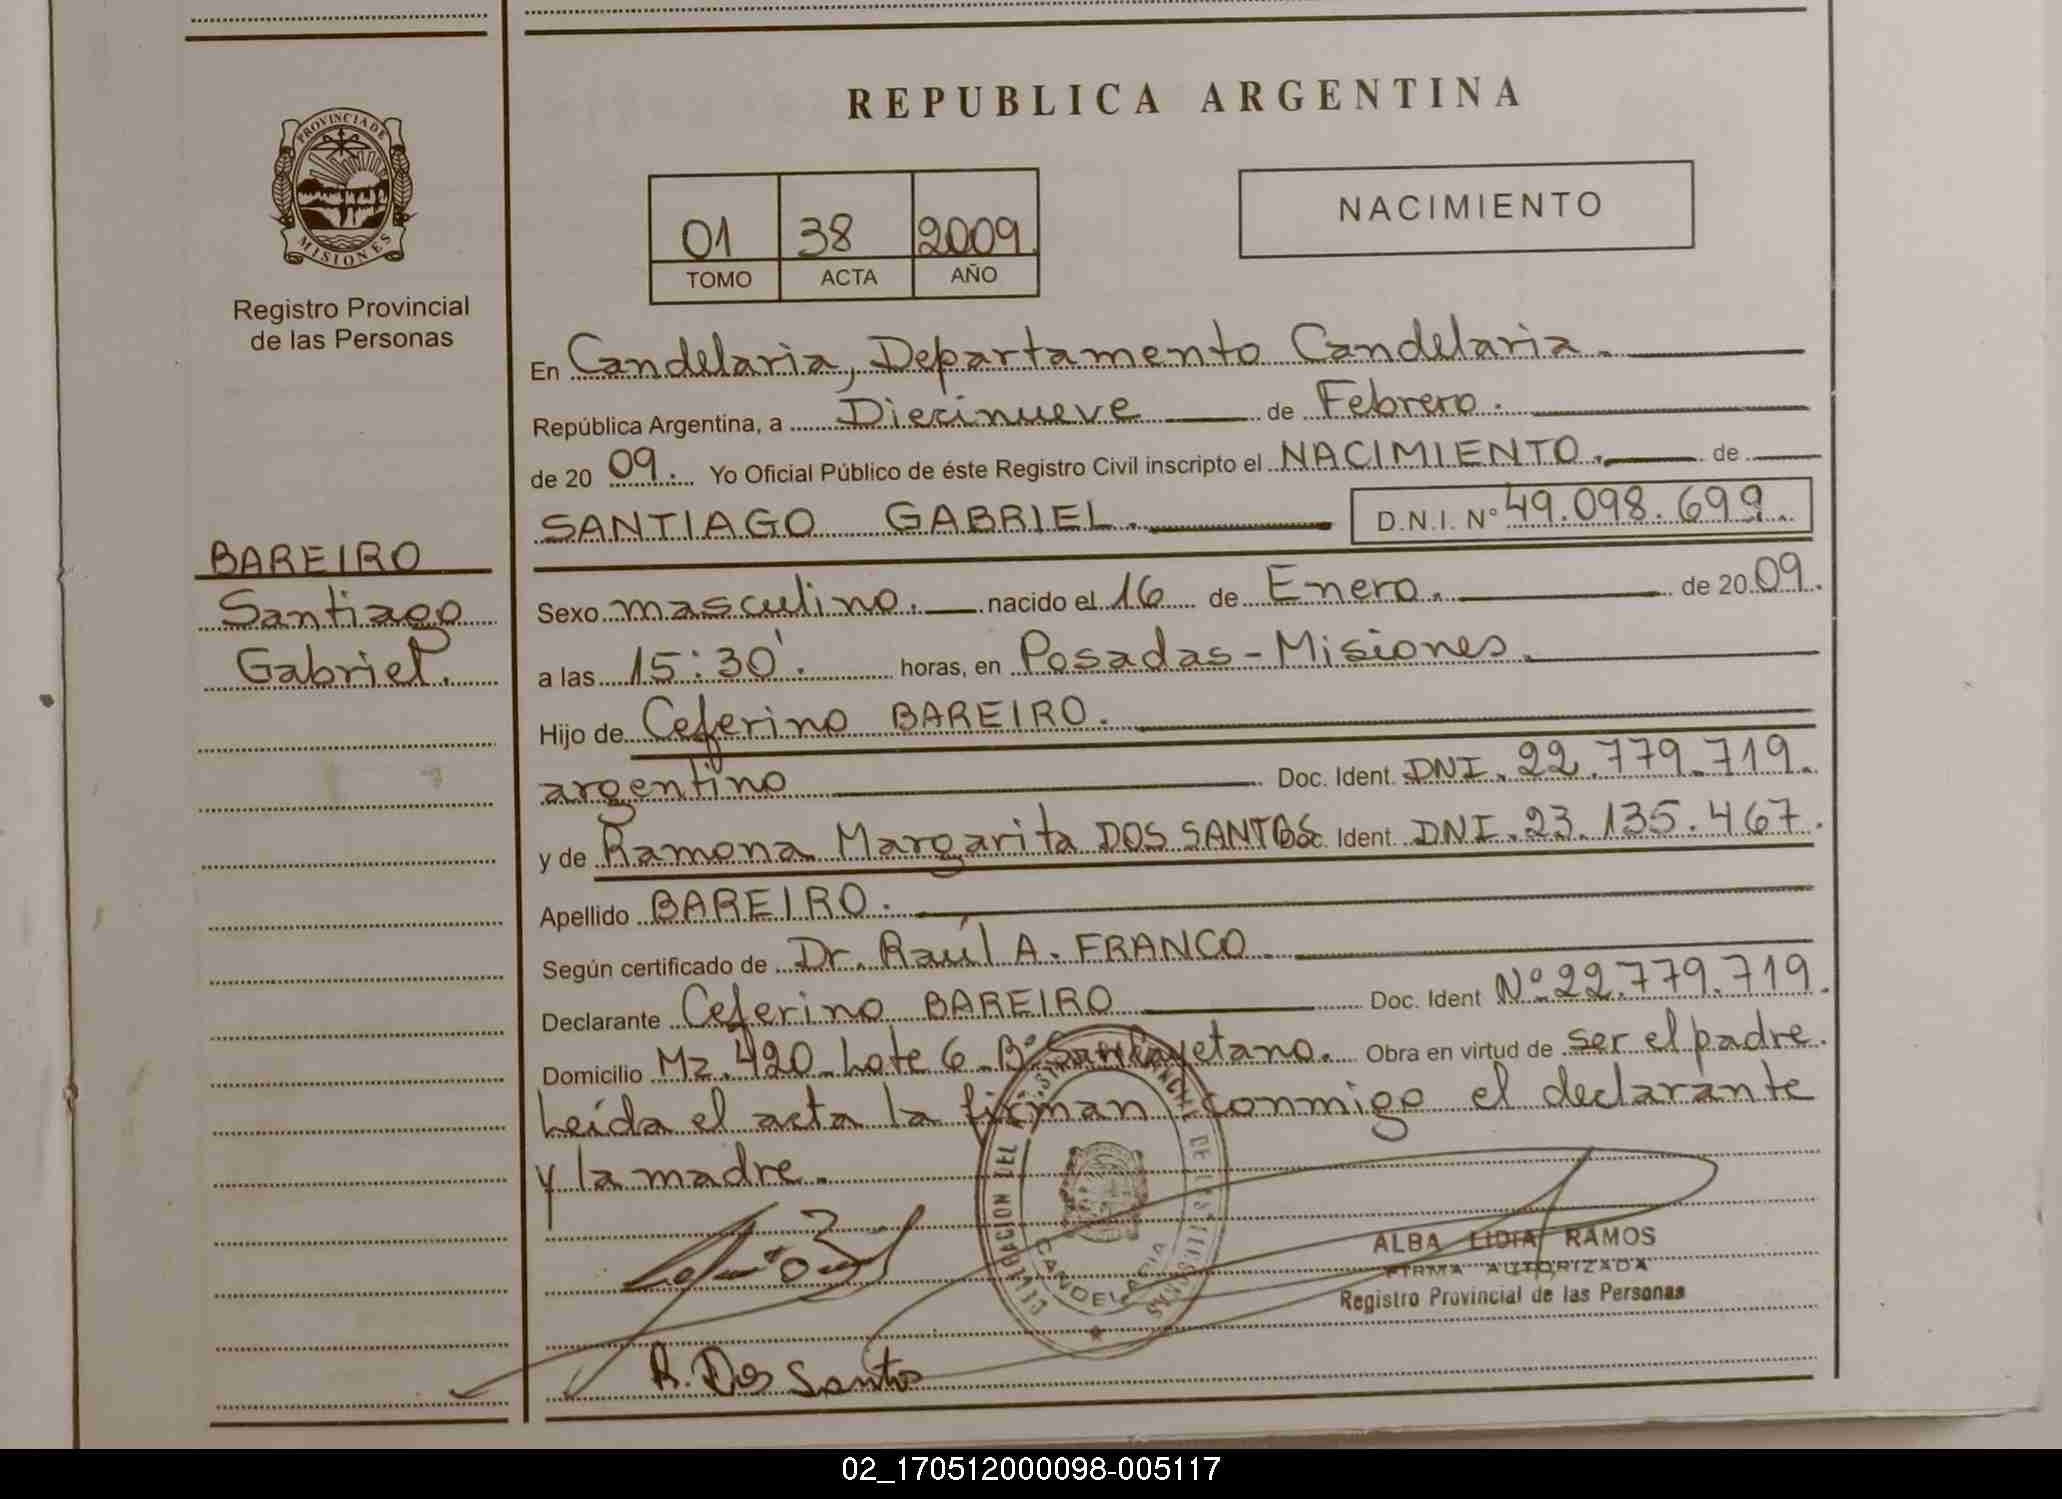 REPUBLICA ARGENTINA
NACIMIENTO
01 38 2009
TOMO ACTA AÑO
PROVINCIA DE
MISIONES
Registro Provincial
de las Personas
BAREIRO
Santiago
Gabriel.
En Candelaria, Departamento Candelaria.
República Argentina, a Diecinueve de Febrero.
de 20 09. Yo Oficial Público de éste Registro Civil inscripto el NACIMIENTO. de
SANTIAGO GABRIEL. D.N.I. Nº 49.098.699.
Sexo masculino. nacido el 16 de Enero. de 20 09.
a las 15:30'. horas, en Posadas-Misiones.
Hijo de Ceferino BAREIRO.
argentino Doc. Ident. DNI. 22.779.719.
y de Ramona Margarita DOS SANTOS Doc. Ident. DNI. 23.135.467.
Apellido BAREIRO.
Según certificado de Dr. Raúl A. FRANCO.
Declarante Ceferino BAREIRO Doc. Ident Nº 22.779.719.
Domicilio Mz. 420 Lote 6 Bº San Cayetano. Obra en virtud de ser el padre.
Leída el acta la firman conmigo el declarante
y la madre.
DELEGACION DEL REGISTRO PROVINCIAL DE LAS PERSONAS
CANDELARIA
ALBA LIDIA RAMOS
FIRMA AUTORIZADA
Registro Provincial de las Personas
R. Dos Santos
02_170512000098-005117